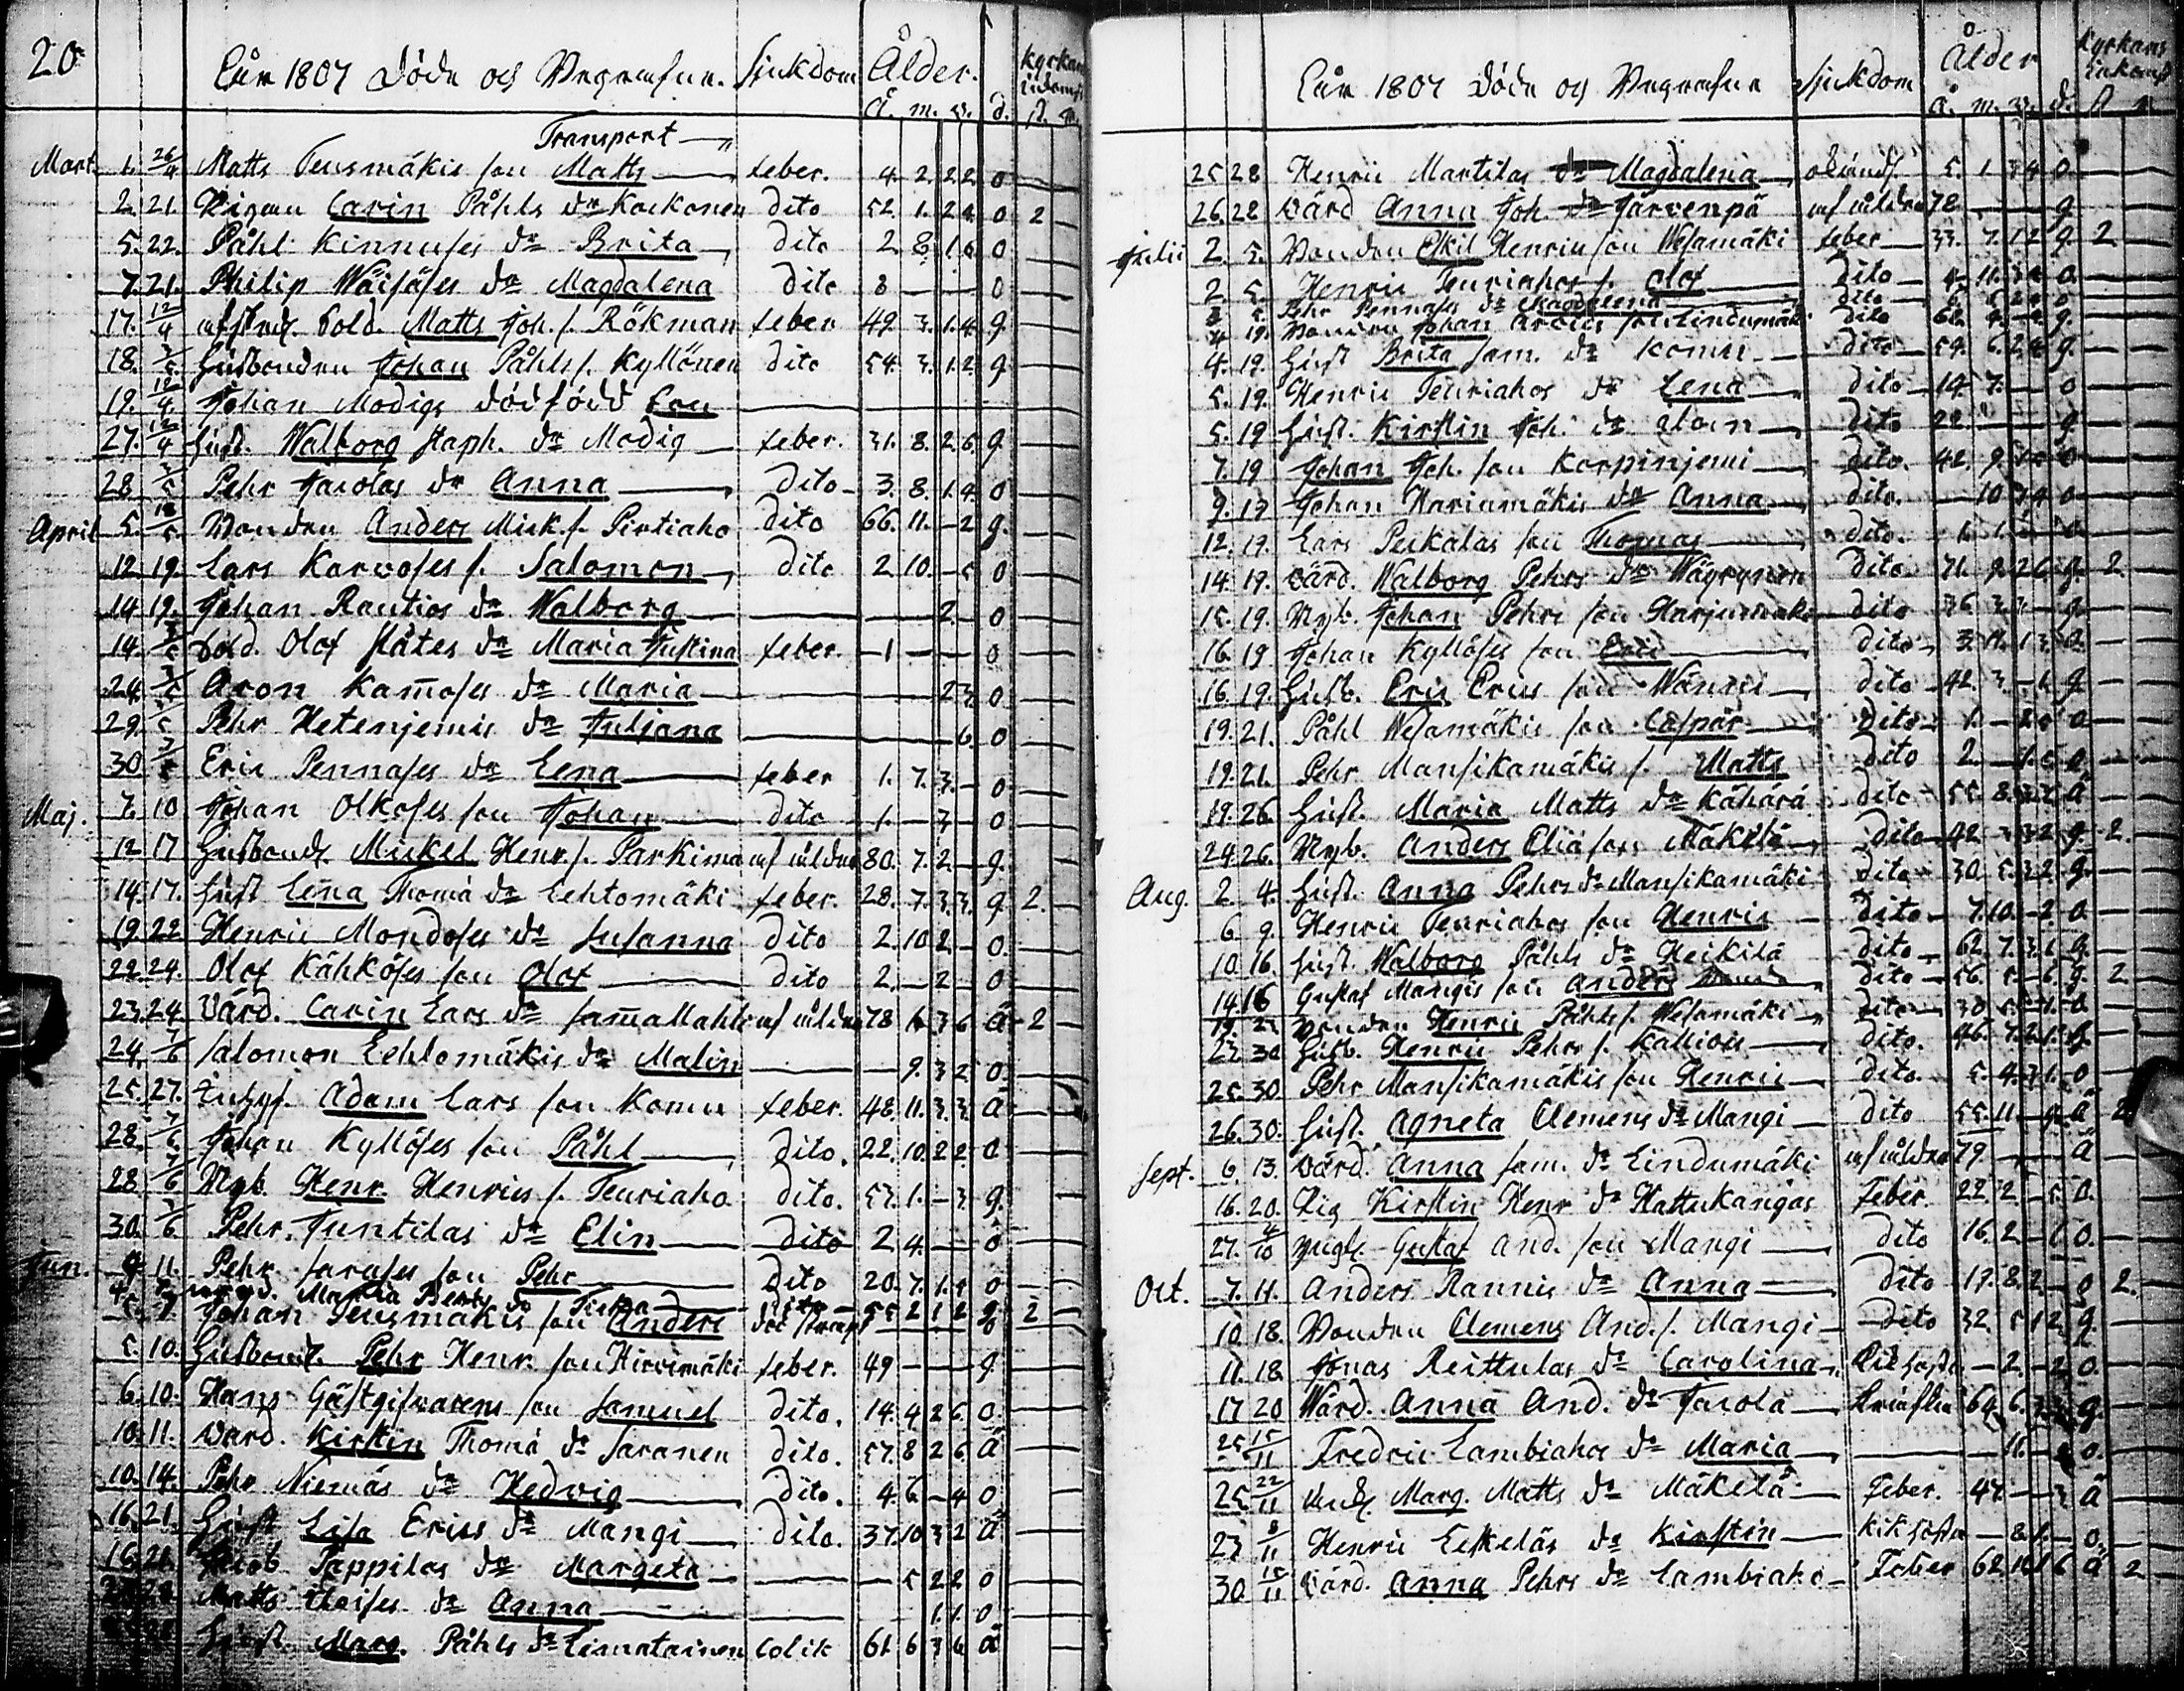 20
Åår 1807 döde och Begrafne. Sjukdom Ålder. Kyrkans
å. m. v. d.
Transport
Mart. 1. 26/4 Matts Teusmäkis son Matts feber. 4. 2. 2 2. o
2. 21. Pigan Carin Påhls dr Kaikonen dito 52. 1. 2 4. o 2
5. 22. Påhl Kinnuses dr Brita dito 2. 8. 1 6 o
7. 21. Philip Wäisäses dr Magdalena dito 8 o
17. 12/4 Sold. Matts Joh. s. Rökman feber 49. 3. 1. 4. g.
18. Husbonden Johan Påhls s. Kyllönen dito 54. 3. 1. 2. g.
19. 12/4 Johan Modigs dödfödd Son
27. 12/4 Hust. Walborg Staph. dr Modig feber. 31. 8. 2 6. g.
28 3/5 Pehr Jacolas dr Anna dito 3. 8. 1. 4. o
April 5. Bonden Anders Mick. s. Pirtiaho dito 66. 11. – 2 g.
12 19. Lars Karvoses s. Salomon dito 2 10. o
14 19. Johan Rautios dr Walborg 2. o
14. 3/5 Sold. Olof Ståtes dr Maria Justina feber. 1 o
24. 3/5 Aron Kam̄oses dr Maria 2 3. o
29. Pehr Hetenjemis dr Juljana 6. o
30 Eric Pennases dr Lena feber 1. 7. 3. – o
Maj. 7. 10 Johan Olkoses son Johan dito 1. – 3 – o
12 17 Husbond. Mickel Henr. s. Parkima af ålder 80. 7. 2 – g.
14. 17. Hust Lena Thomä dr Lehtomäki feber. 28. 7. 3. 3. g 2.
19 22 Henric Mondoses dr Susanna dito 2. 10 2 – o.
22. 24. Olof Kähköses son Olof dito 2. – 2 – o
23. 24. Värd. Carin Lars dr af ålder 78 3 6 ä 2
24. 7/6 Salomon Lehtomäkis dr Malin 9. 3 2 o
25. 27. Inhys. Adam Lars son Komu feber. 48. 11. 3. 3. ä
28. 7/6 Johan Kyllöses son Påhl dito. 22. 10 2 2. o
28 7/6 Nyb. Henr. Henrics s. Teuriaho dito. 53. 1. – 3. g.
30. 7/6 Pehr. Juntilas dr Elin dito 2. 4. o
Jun. 4 11. Pehr Sarases son Pehr dito 20. 7. 1. o
Martha Bents dr 55 2 1 2 g 2
Johan Teusmäkis son Anders
5. 10. Husbond. Pehr Henr. son Hirvimäki feber. 49 g.
6. 10. Hans Gästgifvarens son Samuel dito. 14. 4 2 6. o.
10. 11. Värd. Kirstin Thomä dr Saranen dito. 57. 8 2 6 ä
10. 14. Pehr Niemäs dr Hedvig dito. 4. 6. – 4 o
16. 21. Hust Lisa Erics dr Mangi dito. 37. 10 3 2 ä
Jacob Pappilas dr Margeta 5 2 2 o
Matts dr Anna 1. 1. o
Hust. Marg. Påhls dr Limatainen Colik 61 6 3 6 ä
Åår 1807 döde och Begrafne Sjukdom Ålder Kyrkans
å. m. v. d.
25 28 Henric Martilas dr Magdalena 5. 1 3 4 o.
26. 28 Värd Anna Joh. dr Järvenpä af ålder 78 g.
Julii 2. 5. Bonden Eskil Henrics son Wesamäki feber 33. 7. 1 2 g. 2
2 5. Henric Teuriahos s. Olof dito 4. 11. o.
Pehr Pennases dr Magdalena dito
4 19. Bonden Johan son Lindumäki dito g.
4. 19. Hust Brita Sam. dr Komu dito 59. 6. 2 4 g.
5. 19. Henric Teuriahos dr Lena dito 14 7. o
5. 19 Hust. Kirstin Joh. dr dito 22. g.
7. 19 Johan Joh. son Korpinjemi dito. 42. 9. o
9. 19 Johan Harjumäkis dr Anna dito. 10 3 4 o
12. 19. Lars Peikalas son Thomas dito. o
14. 19. Värd. Walborg Pehrs dr Wäyrynen dito 71. 9. 2 6. g. 2
15. 19. Nyb. Johan Pehrs son Harjumäki dito 36 3 g.
16. 19 Johan Kyllöses son Eric dito 3. 11. 1 3. o.
16. 19. Husb. Eric Erics son Wännii dito 42. 3. g.
19. 21. Påhl Wesamäkis son Caspar dito 1. o
19. 21. Pehr Mansikamäkis s. Matts dito 2. – 1. 5 o.
19. 26 Hust. Maria Matts dr Kähärä dito 55. 8. 3 2 ä
24. 26. Nyb. Anders Eliä son Mäkelä dito 42 3 3 2 g. 2.
Aug. 2 4. Hust. Anna Pehrs dr Mansikamäki dito 30. 5. 3 2. g.
6 9. Henric Teuriahos son Henric dito 7. 10. – 2. o.
10 16. Hust. Walborg Påhls dr Heikilä dito 62. 7. 3. 6. g.
14 16 Gustaf Mangis son Anders dito 56. 5. – 6. g. 2
19. 23 Bonden Henric Påhls s. Wesamäki dito 30
23 30 Husb. Henric Pehrs s. Kallioin dito. 46. 7. 2. 1. g.
25. 30 Pehr Mansikamäkis son Henric dito. 5. 4. 3. 1. o
26. 30. Hust. Agneta Clemens dr Mangi dito 55. 11. ä 2
Sept. 6. 13. Värd. Anna Sam. dr Lindumäki af ålder 79. ä
16. 20. Pig Kirstin Henr dr Hattukangas feber. 22. 2. – 5. o.
27. 4/10 yngl. Gustaf And. son Mangi dito 16. 2 – 1. o.
Oct. 7. 11. Anders Rannis dr Anna dito 19. 8. 2 – o 2.
10 18. Bonden Clemens And. s. Mangi dito 32. 5 1 2 g.
11. 18. Jonas Reittulas dr Carolina Kikhosta – 2. – 2 o.
17 20 Wärd. Anna And. dr Jacola 69 6. g.
25 15/11 Fredric Lambiahos dr Maria 11. o.
25 22/11 Marg. Matts dr Mäkelä Feber. 47 – 3 ä
23 8/11 Henric Eskeläs dr Kirstin Kikhosta 8. 1. – o.
30 15/11 Värd. Anna Pehrs dr Lambiaho Feber 62 10 1 6 ä 2